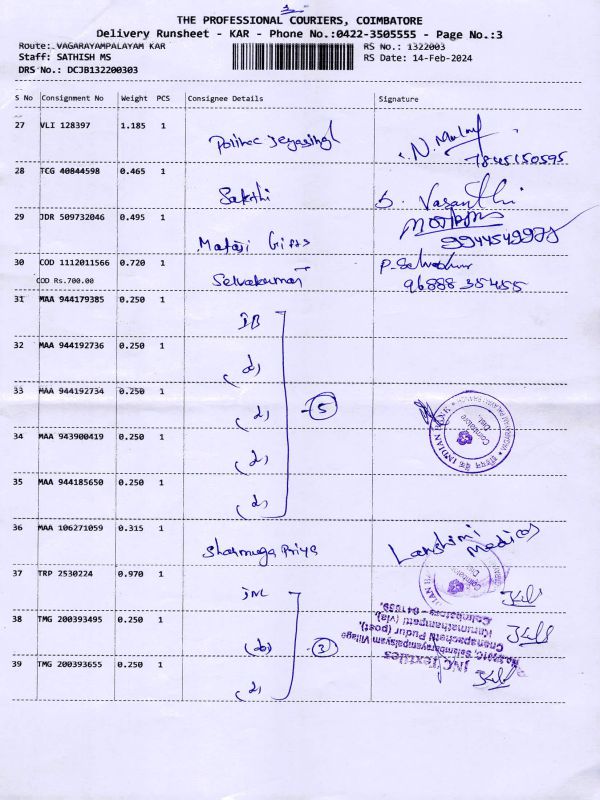 THE PROFESSIONAL COURIERS, COIMBATORE
Delivery Runsheet - KAR - Phone No.:0422-3505555 - Page No.:3
Route: VAGARAYAMPALAYAM KAR RS No.: 1322003
Staff: SATHISH MS RS Date: 14-Feb-2024
DRS No.: DCJB132200303
S No Consignment No Weight PCS Consignee Details Signature
27 VLI 128397 1.185 1
7845150595
28 TCG 40844598 0.465 1 Sakthi
Vasanthi
29 JDR 509732046 0.495 1 Gifts
9944549979
30 COD 1112011566 0.720 1 Selvakumar
COD Rs.700.00 96888 35455
31 MAA 944179385 0.250 1 IB
32 MAA 944192736 0.250 1
33 MAA 944192734 0.250 1
5
34 MAA 943900419 0.250 1
INDIAN BANK
Coimbatore Dist.
35 MAA 944185650 0.250 1
36 MAA 106271059 0.315 1 Shanmuga Priya
Lakshmi Medicos
37 TRP 2530224 0.970 1 JNC
38 TMG 200393495 0.250 1
3
39 TMG 200393655 0.250 1
JNC Textiles
Selambarayampalayam Village
Pudur (post),
Karumathampatti (via),
Coimbatore 641659.